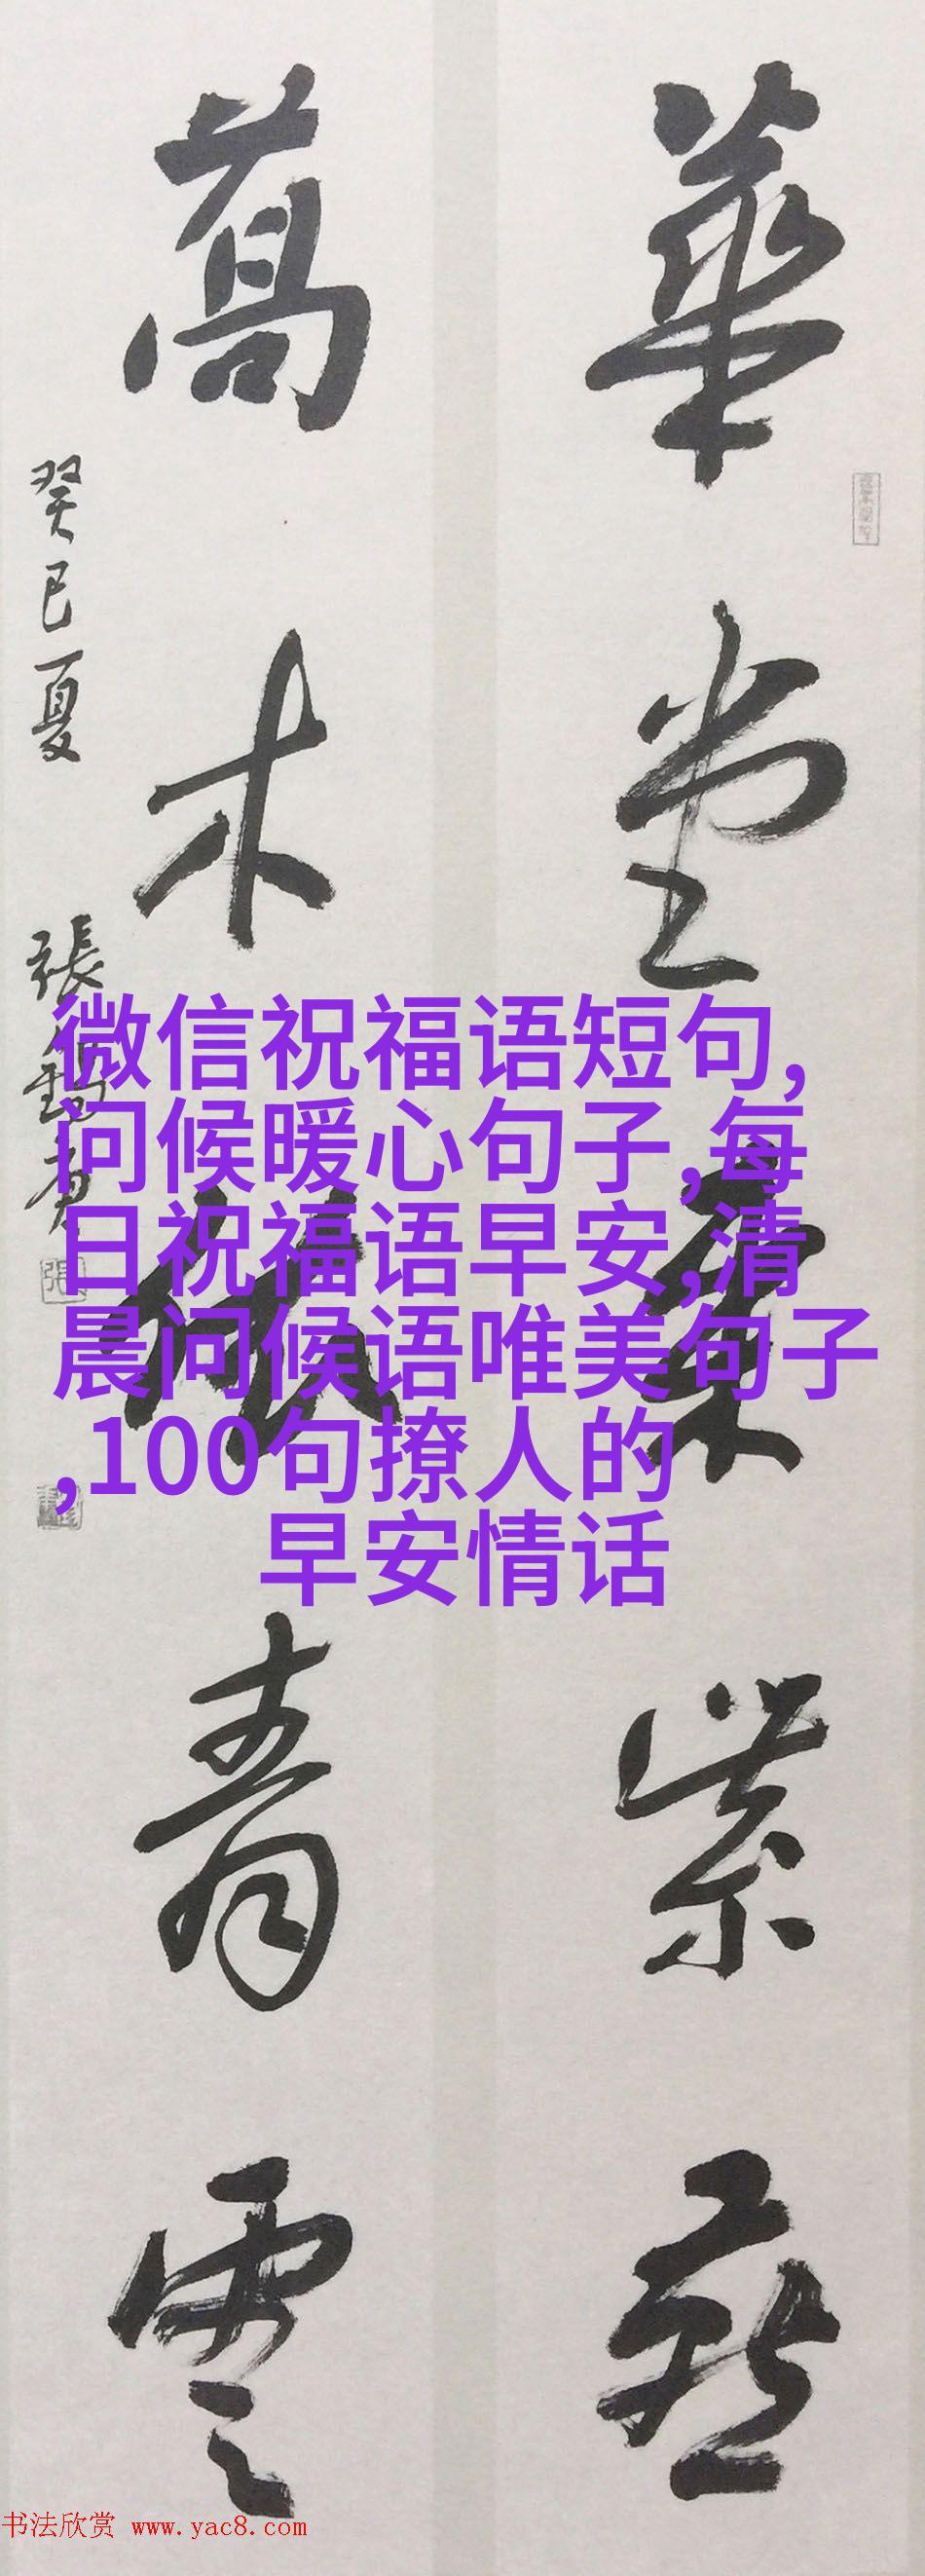 華堂紫燕
萬木青雲
癸巳夏 張錫庚
微信祝福语短句,
问候暖心句子,每
日祝福语早安,清
晨问候语唯美句子
,100句撩人的
早安情话
书法欣赏 www.yac8.com